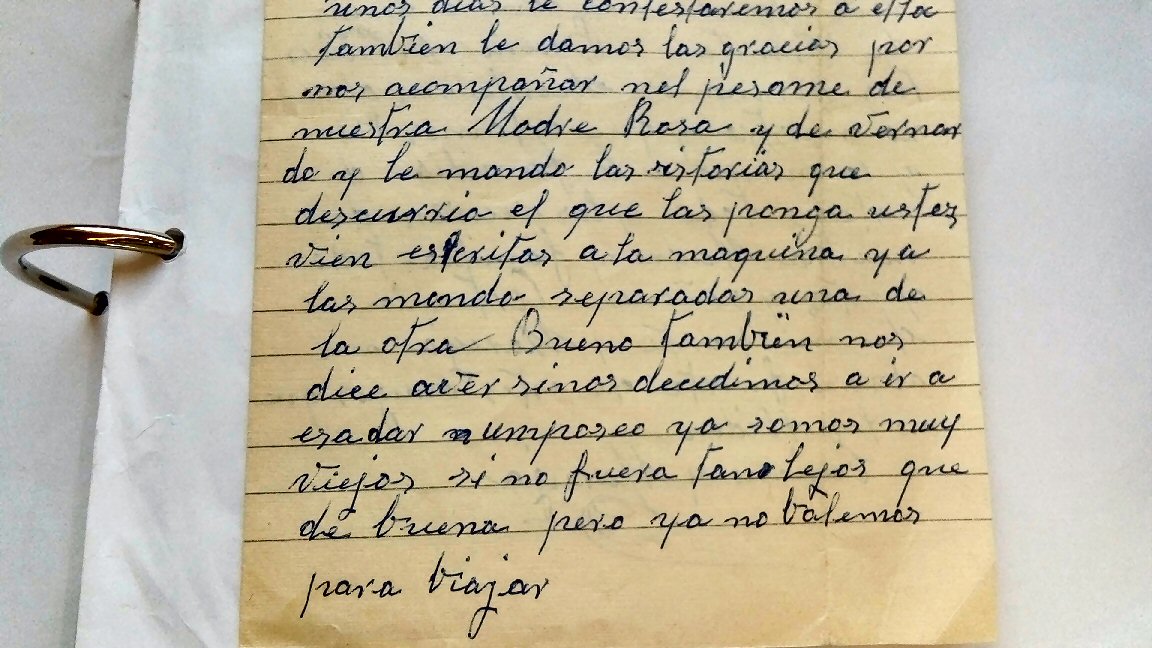 unos dias le contestaremos a ella
tambien le damos las gracias por
nos acompañar nel pesame de
nuestra Madre Rosa y de vernar
do y le mando las istorias que
descurrio el que las ponga ustez
vien escritas a la maquina ya
las mando separadas una de
la otra Bueno tambien nos
dice aver sinos decedimos a ir a
esadar un paseo ya somos muy
viejos si no fuera tan lejos que
de buena pero ya no balemos
para biajar